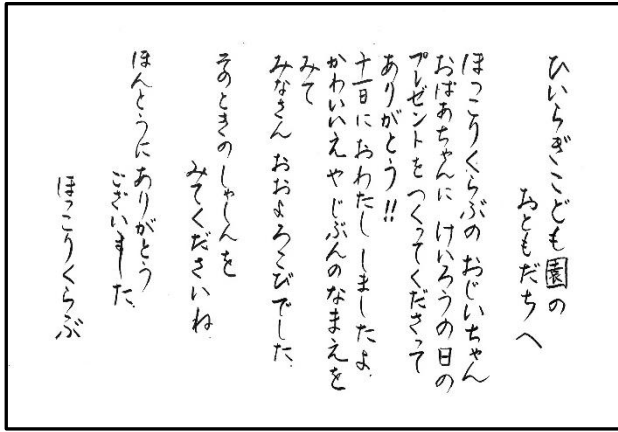 ひいらぎこども園の
おともだちへ
ほっこりくらぶの おじいちゃん
おばあちゃんに けいろうの日の
プレゼントをつくってくださって
ありがとう!!
十一日におわたし しましたよ.
かわいいえや じぶんのなまえを
みて
みなさん おおよろこびでした.
そのときのしゃしんを
みてくださいね.
ほんとうにありがとう
ございました.
ほっこりくらぶ